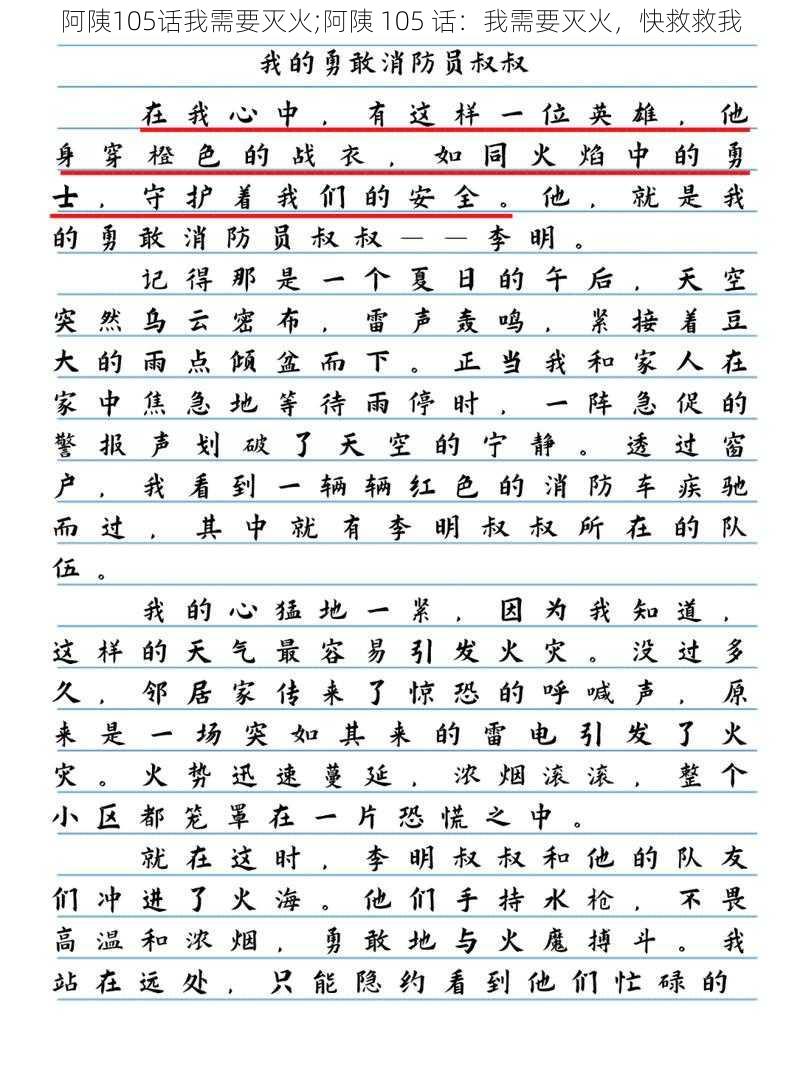 阿陕105话我需要灭火;阿陕 105 话：我需要灭火，快救救我
我的勇敢消防员叔叔
在我心中，有这样一位英雄，他
身穿橙色的战衣，如同火焰中的勇
士，守护着我们的安全。他，就是我
的勇敢消防员叔叔——李明。
记得那是一个夏日的午后，天空
突然乌云密布，雷声轰鸣，紧接着豆
大的雨点倾盆而下。正当我和家人在
家中焦急地等待雨停时，一阵急促的
警报声划破了天空的宁静。透过窗
户，我看到一辆辆红色的消防车疾驰
而过，其中就有李明叔叔所在的队
伍。
我的心猛地一紧，因为我知道，
这样的天气最容易引发火灾。没过多
久，邻居家传来了惊恐的呼喊声，原
来是一场突如其来的雷电引发了火
灾。火势迅速蔓延，浓烟滚滚，整个
小区都笼罩在一片恐慌之中。
就在这时，李明叔叔和他的队友
们冲进了火海。他们手持水枪，不畏
高温和浓烟，勇敢地与火魔搏斗。我
站在远处，只能隐约看到他们忙碌的